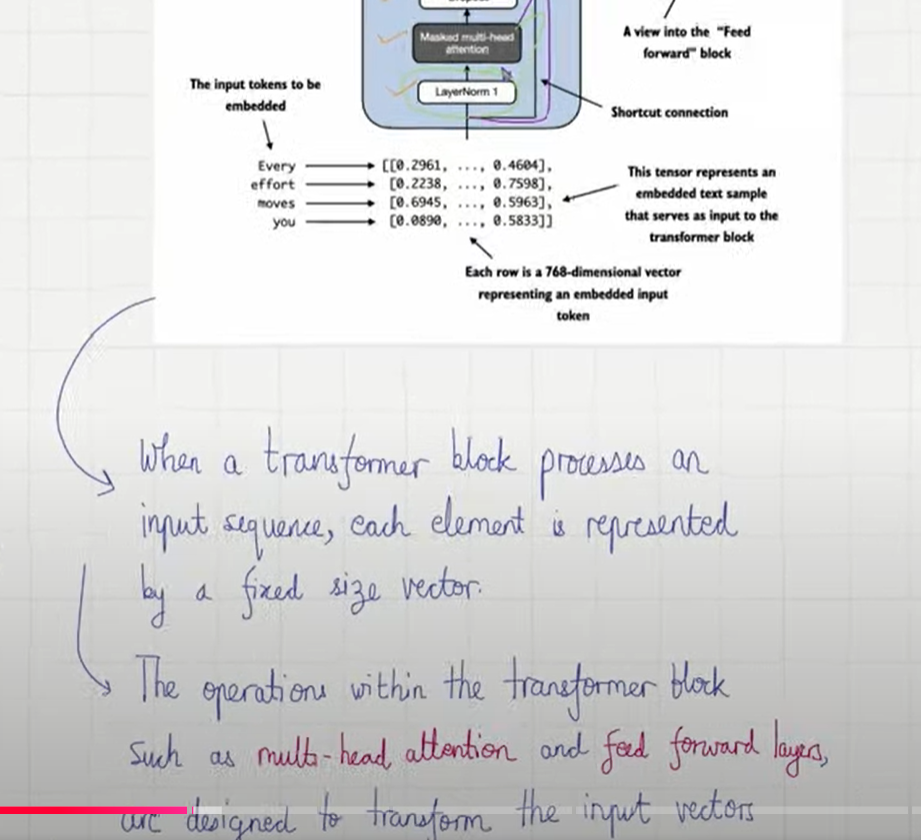 Masked multi-head
attention
LayerNorm 1
A view into the "Feed
forward" block
Shortcut connection
The input tokens to be
embedded
Every [[0.2961, ..., 0.4604],
effort [0.2238, ..., 0.7598],
moves [0.6945, ..., 0.5963],
you [0.0890, ..., 0.5833]]
This tensor represents an
embedded text sample
that serves as input to the
transformer block
Each row is a 768-dimensional vector
representing an embedded input
token
When a transformer block processes an
input sequence, each element is represented
by a fixed size vector.
The operations within the transformer block
such as multi-head attention and feed forward layers,
are designed to transform the input vectors